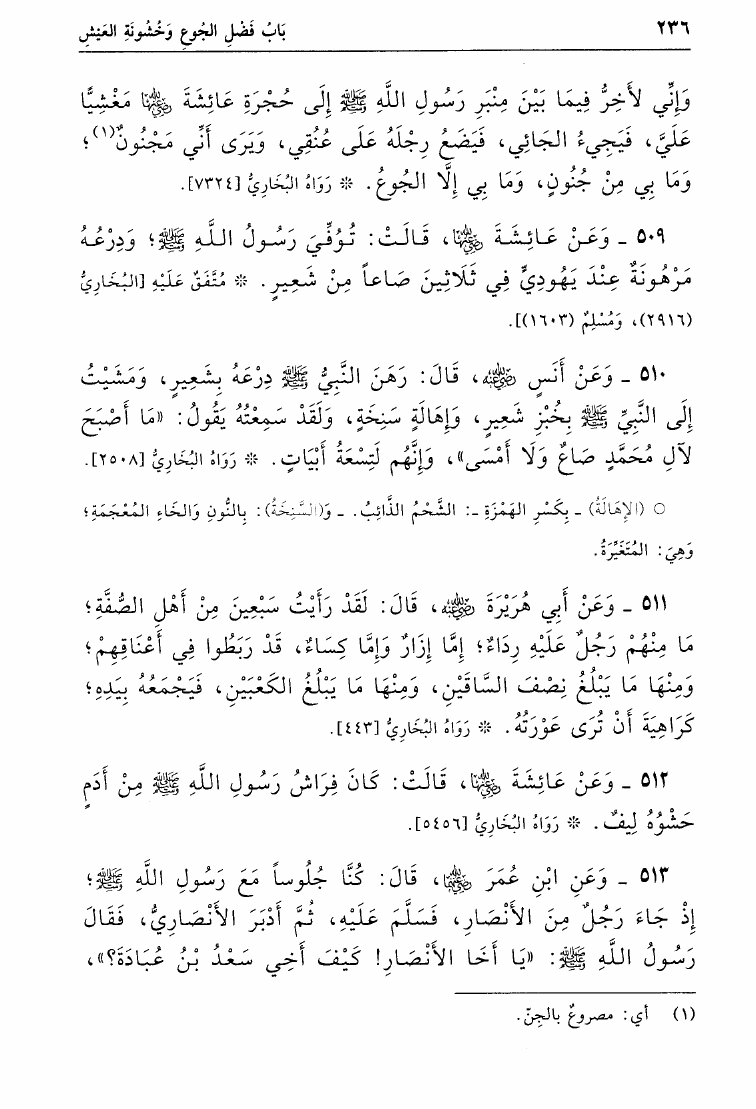 ٢٣٦ بَابُ فَضْلِ الجُوعِ وَخُشُونَةِ العَيْشِ
وَإِنِّي لأَخِرُّ فِيمَا بَيْنَ مِنْبَرِ رَسُولِ اللَّهِ ﷺ إِلَى حُجْرَةِ عَائِشَةَ رضي الله عنها مَغْشِيًّا
عَلَيَّ، فَيَجِيءُ الجَائِي، فَيَضَعُ رِجْلَهُ عَلَى عُنُقِي، وَيَرَى أَنِّي مَجْنُونٌ(١)؛
وَمَا بِي مِنْ جُنُونٍ، وَمَا بِي إِلَّا الجُوعُ. * رَوَاهُ البُخَارِيُّ [٧٣٢٤].
٥٠٩ ـ وَعَنْ عَائِشَةَ رضي الله عنها، قَالَتْ: تُوُفِّيَ رَسُولُ اللَّهِ ﷺ؛ وَدِرْعُهُ
مَرْهُونَةٌ عِنْدَ يَهُودِيٍّ فِي ثَلَاثِينَ صَاعاً مِنْ شَعِيرٍ. * مُتَّفَقٌ عَلَيْهِ [البُخَارِيُّ
(٢٩١٦)، وَمُسْلِمٌ (١٦٠٣)].
٥١٠ ـ وَعَنْ أَنَسٍ رضي الله عنه، قَالَ: رَهَنَ النَّبِيُّ ﷺ دِرْعَهُ بِشَعِيرٍ، وَمَشَيْتُ
إِلَى النَّبِيِّ ﷺ بِخُبْزِ شَعِيرٍ، وَإِهَالَةٍ سَنِخَةٍ، وَلَقَدْ سَمِعْتُهُ يَقُولُ: «مَا أَصْبَحَ
لآلِ مُحَمَّدٍ صَاعٌ وَلَا أَمْسَى»، وَإِنَّهُم لَتِسْعَةُ أَبْيَاتٍ. * رَوَاهُ البُخَارِيُّ [٢٥٠٨].
○ (الإِهَالَةُ) ـ بِكَسْرِ الهَمْزَةِ ـ: الشَّحْمُ الذَّائِبُ. ـ وَ(السَّنِخَةُ): بِالنُّونِ وَالخَاءِ المُعْجَمَةِ؛
وَهِيَ: المُتَغَيِّرَةُ.
٥١١ ـ وَعَنْ أَبِي هُرَيْرَةَ رضي الله عنه، قَالَ: لَقَدْ رَأَيْتُ سَبْعِينَ مِنْ أَهْلِ الصُّفَّةِ؛
مَا مِنْهُمْ رَجُلٌ عَلَيْهِ رِدَاءٌ؛ إِمَّا إِزَارٌ وَإِمَّا كِسَاءٌ، قَدْ رَبَطُوا فِي أَعْنَاقِهِمْ؛
وَمِنْهَا مَا يَبْلُغُ نِصْفَ السَّاقَيْنِ، وَمِنْهَا مَا يَبْلُغُ الكَعْبَيْنِ، فَيَجْمَعُهُ بِيَدِهِ؛
كَرَاهِيَةَ أَنْ تُرَى عَوْرَتُهُ. * رَوَاهُ البُخَارِيُّ [٤٤٣].
٥١٢ ـ وَعَنْ عَائِشَةَ رضي الله عنها، قَالَتْ: كَانَ فِرَاشُ رَسُولِ اللَّهِ ﷺ مِنْ أَدَمٍ
حَشْوُهُ لِيفٌ. * رَوَاهُ البُخَارِيُّ [٥٤٥٦].
٥١٣ ـ وَعَنِ ابْنِ عُمَرَ رضي الله عنهما، قَالَ: كُنَّا جُلُوساً مَعَ رَسُولِ اللَّهِ ﷺ؛
إِذْ جَاءَ رَجُلٌ مِنَ الأَنْصَارِ، فَسَلَّمَ عَلَيْهِ، ثُمَّ أَدْبَرَ الأَنْصَارِيُّ، فَقَالَ
رَسُولُ اللَّهِ ﷺ: «يَا أَخَا الأَنْصَارِ! كَيْفَ أَخِي سَعْدُ بْنُ عُبَادَةَ؟»،
(١) أي: مصروعٌ بالجِنّ.